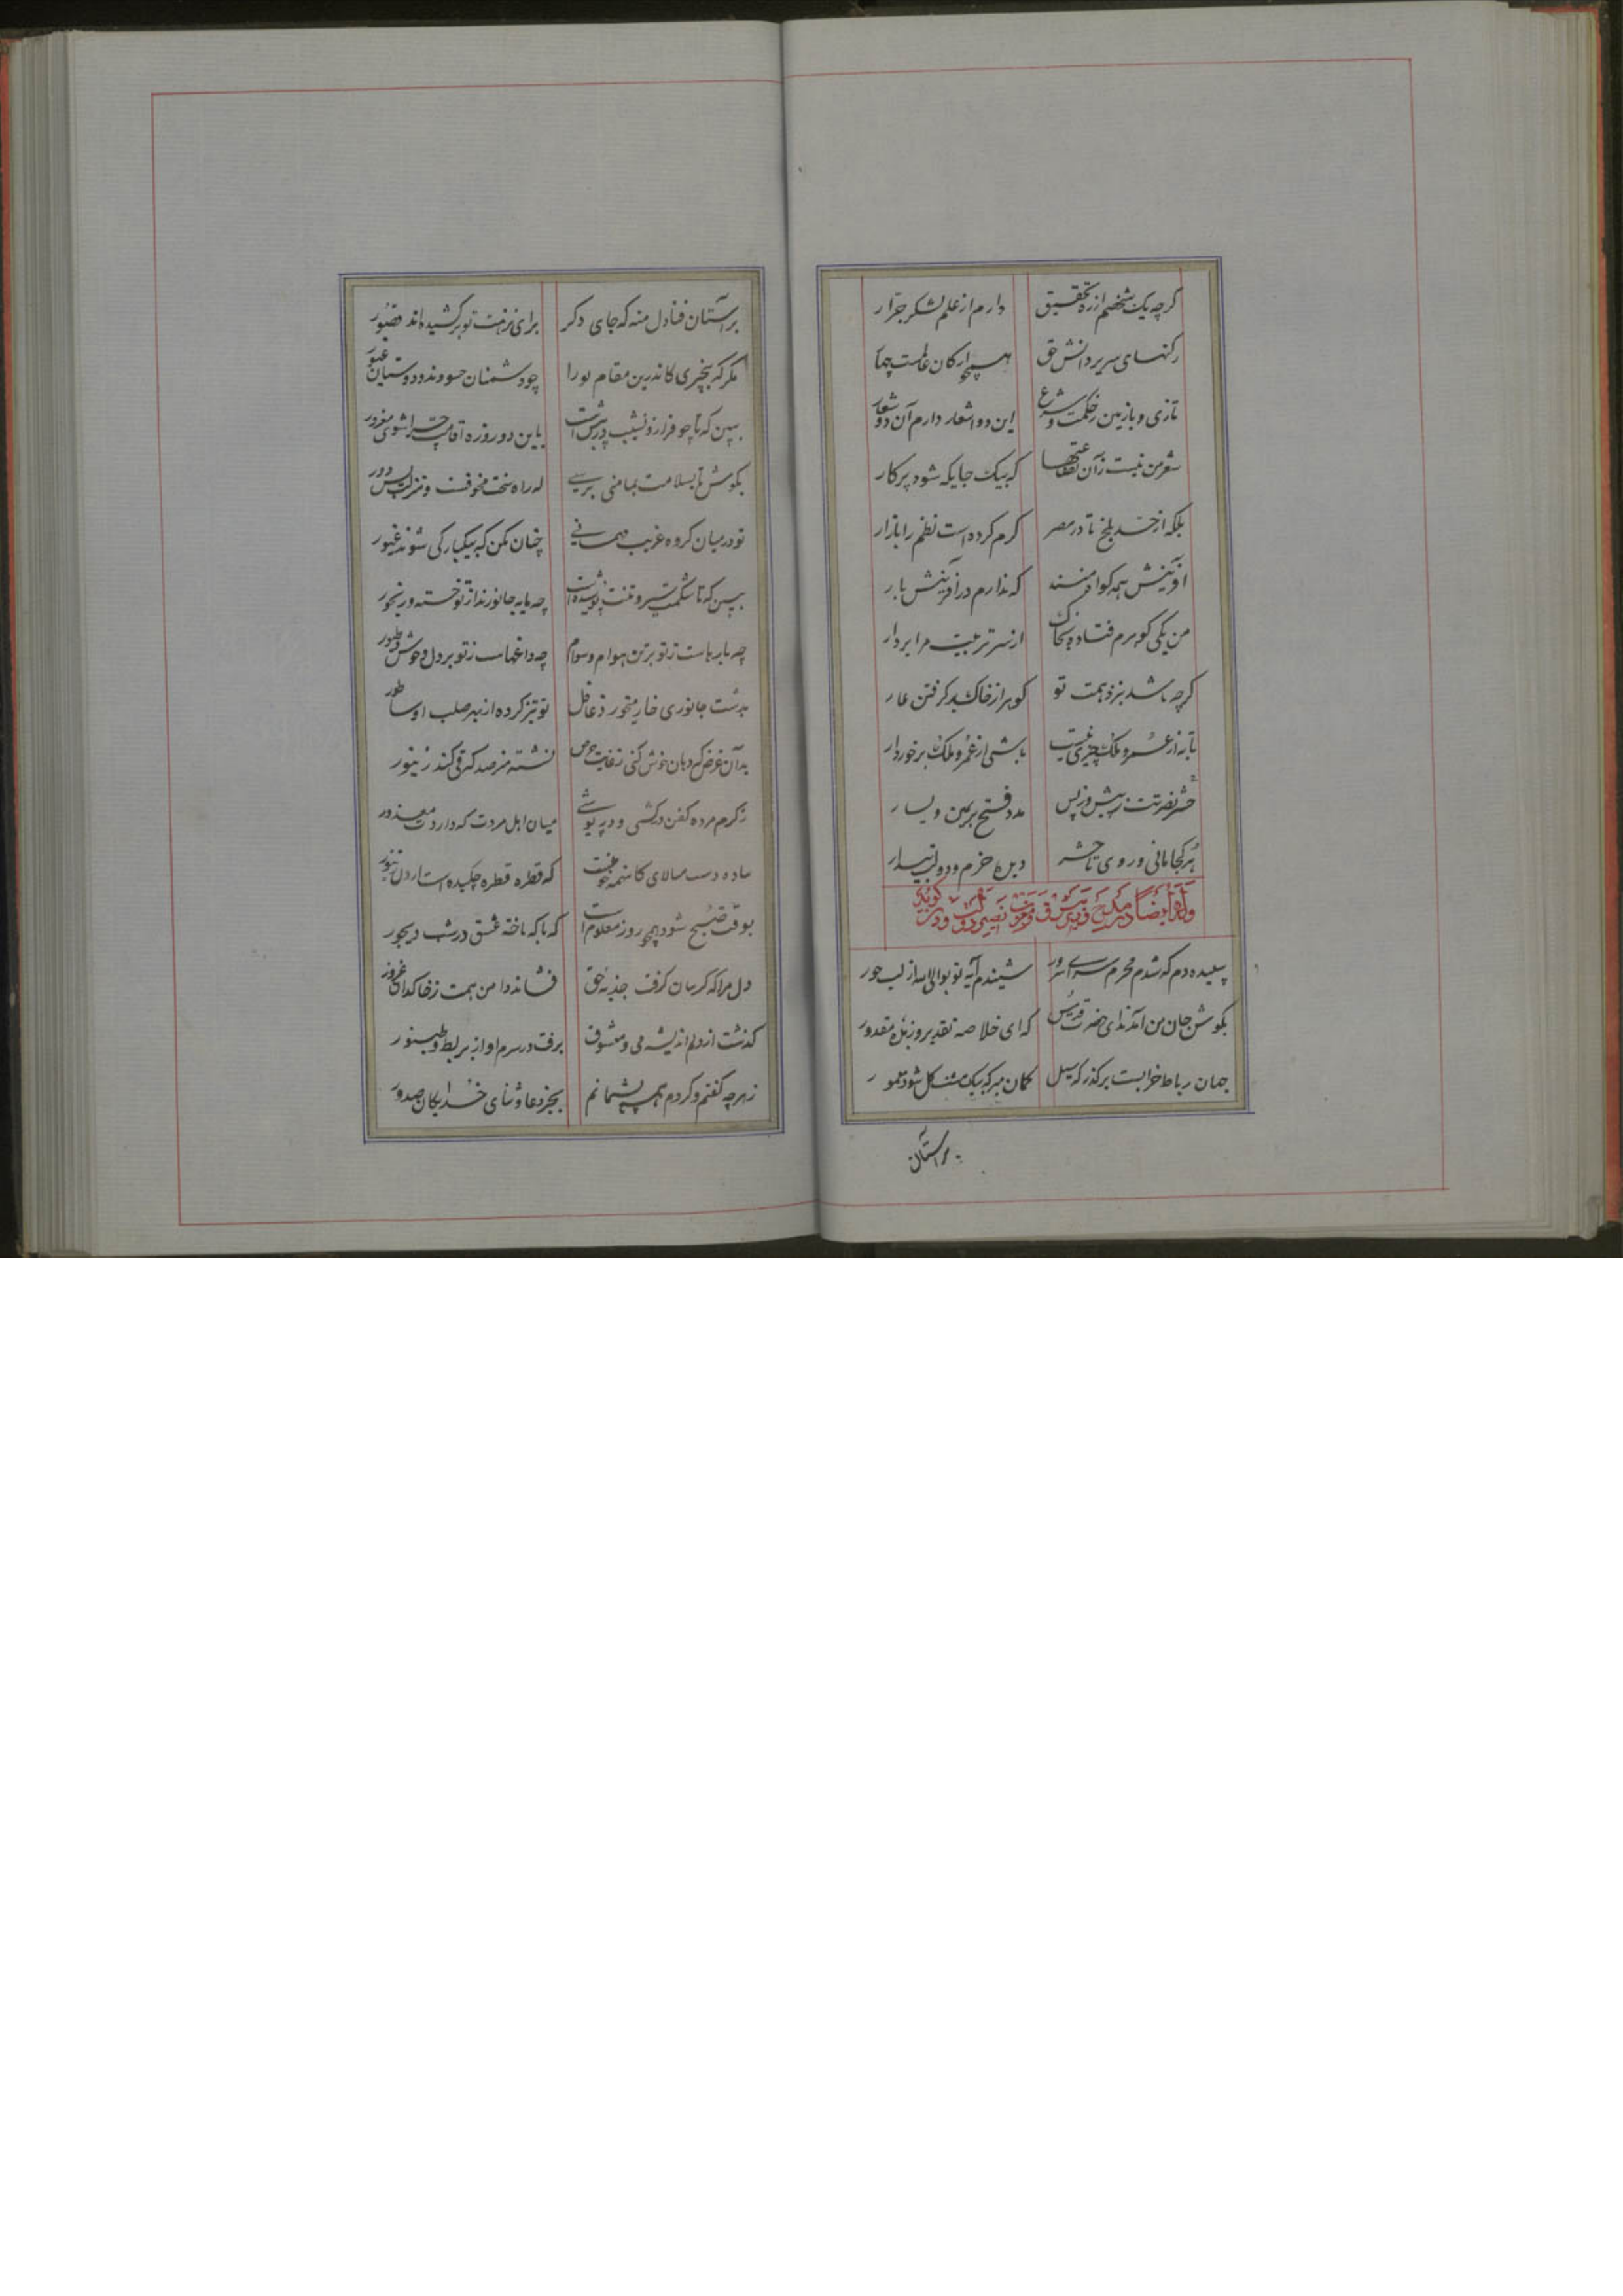 کرچه یک شخصم از ره تحقیق دارم از علم لشکر جرّار
رکنهای سریر دانش حق همچو ارکان عالمست چهار
تازی و پارسی و حکمت و شرع این دو اشعار دارم آن دو شعار
شعر من نیست زآن بضاعتها که بیک جایکه شود پرکار
بلکه از حد بلخ تا در مصر کرم کرده است نظم را بازار
آفرینش همه کواه منند که ندارم در آفرینش یار
من یکی کوهرم فتاده بخاک از سر تربیت مرا بردار
کرچه باشد بنزد همت تو کوهر از خاک بر کرفتن عار
تا به از عمر و ملک چیزی نیست باشی از عمر و ملک برخوردار
حشر نصرتت ز پیش و ز پس مدد فتح بر یمین و یسار
هر کجا مانی و روی تا حشر دین خرم و دولتت یار
وله ایضا در مدح
سپیده دم که شدم محرم سرای سرور شنیدم آیه توبوا الی الله از لب حور
بکوش جان من آمد ندای حضرت قدس که ای خلاصه تقدیر و زبده مقدور
جهان رباط خرابست بر کذرکه سیل کمان مبر که بیک مشت کل شود معمور
بر آستان
بر آستان فنا دل منه که جای دکر برای نزهت تو برکشیده اند قصور
مکر که بیخبری کاندرین مقام تو را چو دشمنان حسودند دوستان غیور
ببین که تا چو فراز و نشیب در پیش است باین دو روزه اقامت چرا شوی مغرور
بکوش تا بسلامت بمامنی برسی که راه سخت مخوفست و منزلت بس دور
تو در میان کروه غریب مهمانی چنان مکن که بیکبارکی شوند غیور
ببین که تا شکمت سیر و تنت پوشیده است چه مایه جانورند از تو خسته و رنجور
چه بارهاست ز تو بر تن هوام و سوام چه داغهاست ز تو بر دل وحوش و طیور
بدشت جانوری خار میخورد غافل تو تیز کرده از بهر صلب او ساطور
بدآن غرض که دهان خوش کنی ز غایت حرص نشسته مترصد که قی کند زنبور
ز کرم مرده کفن درکشی و در پوشی میان اهل مروت که داردت معذور
بباده دست میالای کانهمه خونست که قطره قطره چکیده است از دل انکور
بوقت صبح شود همچو روز معلومت که با که باخته عشق در شب دیجور
دل مرا که کریبان کرفت جذبه حق فشاند دامن همت ز خاکدان غرور
کذشت از دلم اندیشه می و معشوق برفت در سرم آواز بربط و طنبور
ز هرچه کفتم و کردم همه پشیمانم بجز دعا و ثنای خدایکان صدور